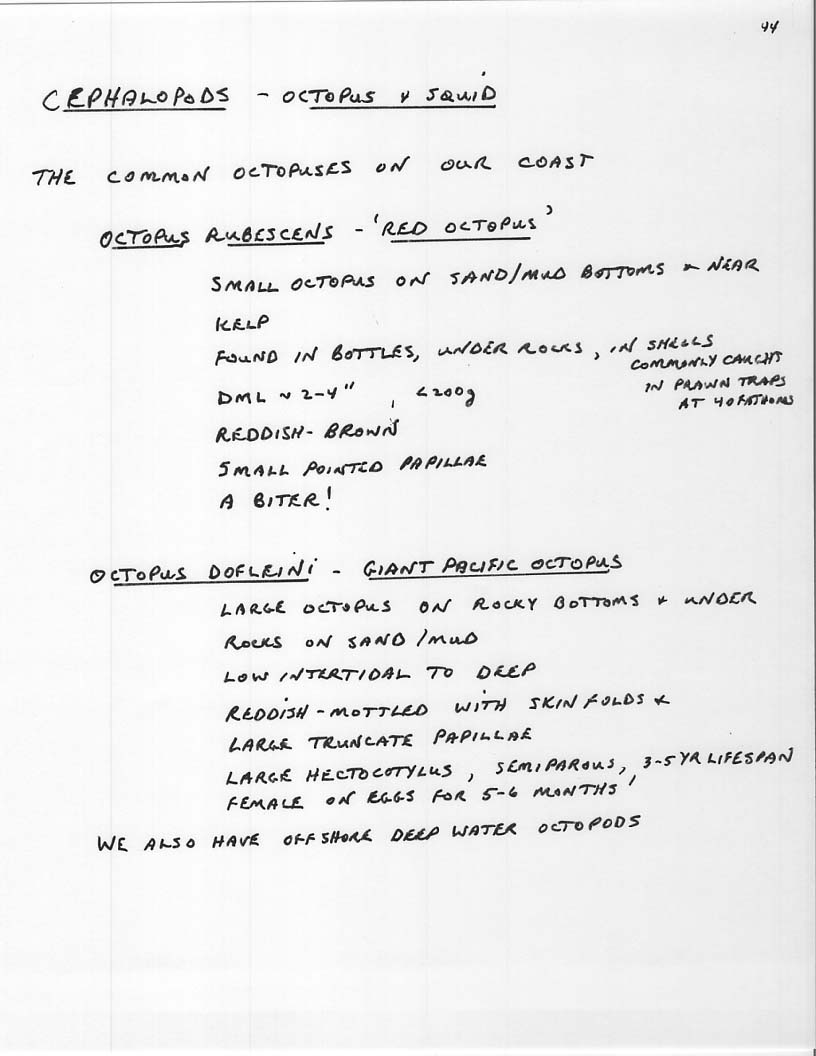 44
CEPHALOPODS - OCTOPUS & SQUID
THE COMMON OCTOPUSES ON OUR COAST
OCTOPUS RUBESCENS - 'RED OCTOPUS'
SMALL OCTOPUS ON SAND/MUD BOTTOMS & NEAR
KELP
FOUND IN BOTTLES, UNDER ROCKS, IN SHELLS
COMMONLY CAUGHT
IN PRAWN TRAPS
AT 40 FATHOMS
DML ~ 2-4", <200g
REDDISH-BROWN
SMALL POINTED PAPILLAE
A BITER!
OCTOPUS DOFLEINI - GIANT PACIFIC OCTOPUS
LARGE OCTOPUS ON ROCKY BOTTOMS & UNDER
ROCKS ON SAND/MUD
LOW INTERTIDAL TO DEEP
REDDISH-MOTTLED WITH SKIN FOLDS &
LARGE TRUNCATE PAPILLAE
LARGE HECTOCOTYLUS, SEMIPAROUS, 3-5 YR LIFESPAN,
FEMALE ON EGGS FOR 5-6 MONTHS
WE ALSO HAVE OFFSHORE DEEP WATER OCTOPODS